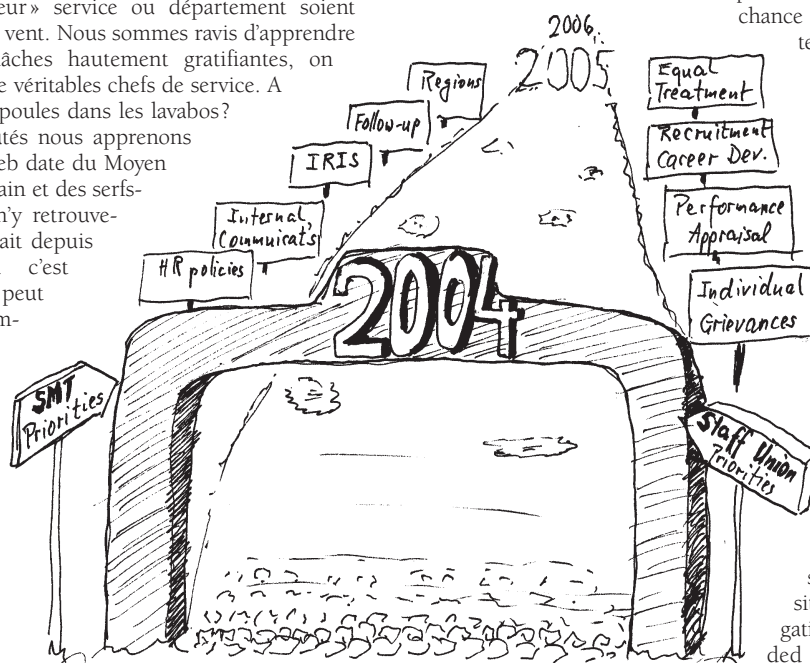 eur» service ou département soient
vent. Nous sommes ravis d'apprendre
âches hautement gratifiantes, on
e véritables chefs de service. A
poules dans les lavabos?
utés nous apprenons
eb date du Moyen
ain et des serfs-
n'y retrouve-
ait depuis
c'est
peut
m-
chance
te
2006
2005
Regions
Follow-up
IRIS
Internal
Communicat's
HR policies
Equal
Treatment
Recruitment
Career Dev.
Performance
Appraisal
Individual
Grievances
2004
SMT
Priorities
Staff Union
Priorities
s
sit
gati
ded